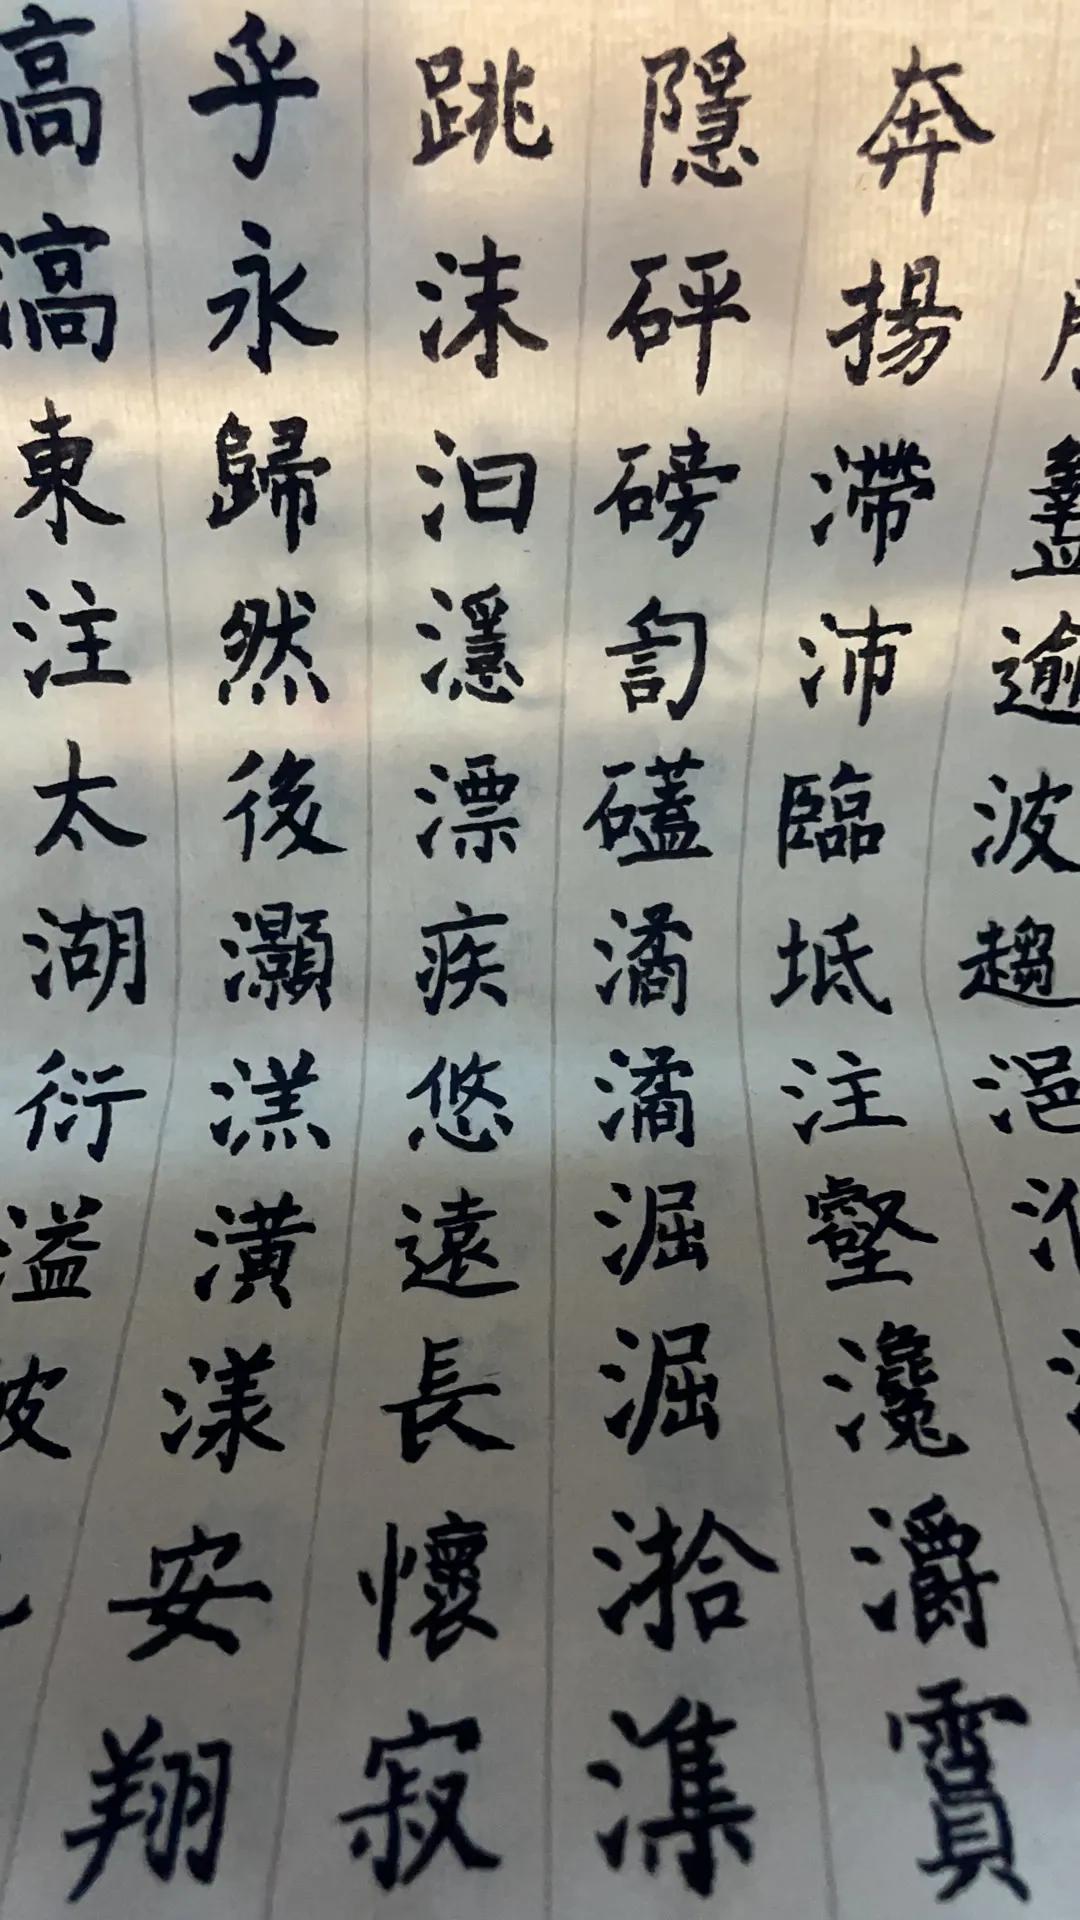 盭逾波趨浥
奔揚滯沛臨坻注壑瀺灂霣
隱砰磅訇礚潏潏淈淈潗
跳沫汩濦漂疾悠遠長懷寂
乎永歸然後灝溔潢漾安翔
滈滈東注太湖衍溢陂